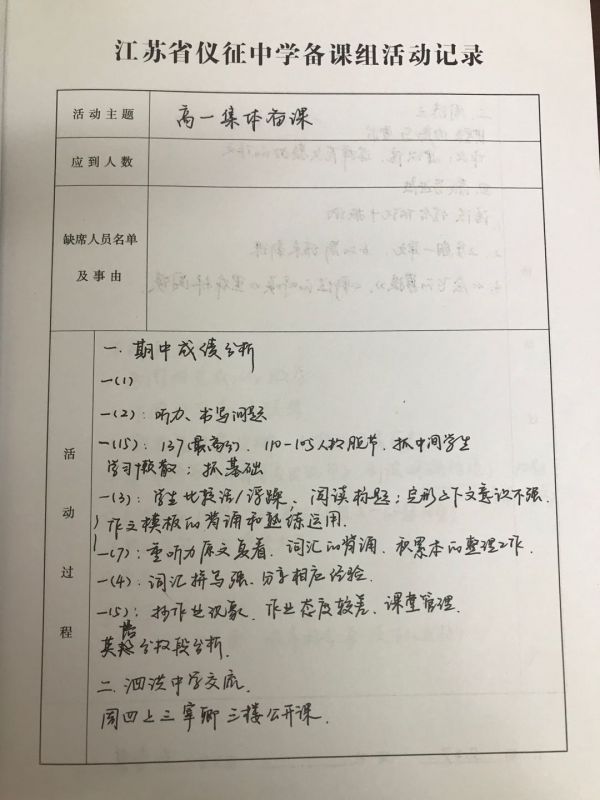 江苏省仪征中学备课组活动记录
活动主题 高一集体备课
应到人数
缺席人员名单
及事由
活动过程
一. 期中成绩分析
一(1)
一(2)：听力、书写问题
一(15)：137(最高分)、110-105人较脱节、抓中间学生
学习懒散；抓基础
一(3)：学生比较活/浮躁、阅读标题；完形上下文意识不强.
作文模板的背诵和熟练运用.
一(7)：重听力原文复看、词汇的背诵、积累本的整理工作.
一(4)：词汇拼写强、分享相应经验.
一(5)：抄作业现象、作业态度较差、课堂管理.
英语分数段分析.
二. 泗洪中学交流.
周四上三 三楼公开课.